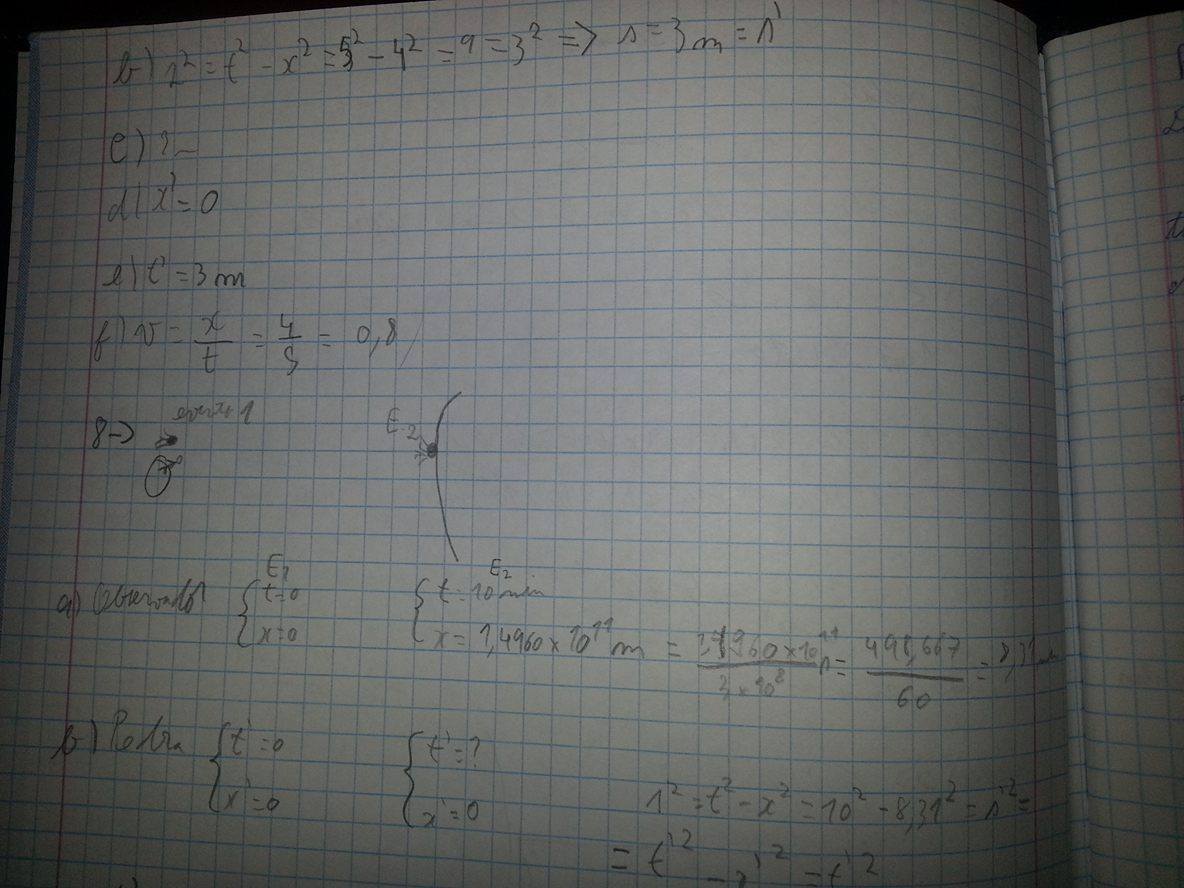 b) s² = t² - x² = 5² - 4² = 9 = 3² => s = 3 m = s'
c) ?
d) x' = 0
e) t' = 3 m
f) v = x/t = 4/5 = 0,8
8->
E2
E1 E2
a) Observador { t=0 { t = 10 min
x=0 x = 1,4960 × 10¹¹ m = 1,4960 × 10¹¹ / 3 × 10⁸ s = 498,667 / 60 = 8,31
b) Pedra { t' = 0 { t' = ?
x' = 0 x' = 0
s² = t² - x² = 10² - 8,31² = s'² =
= t'² - x'² = t'²